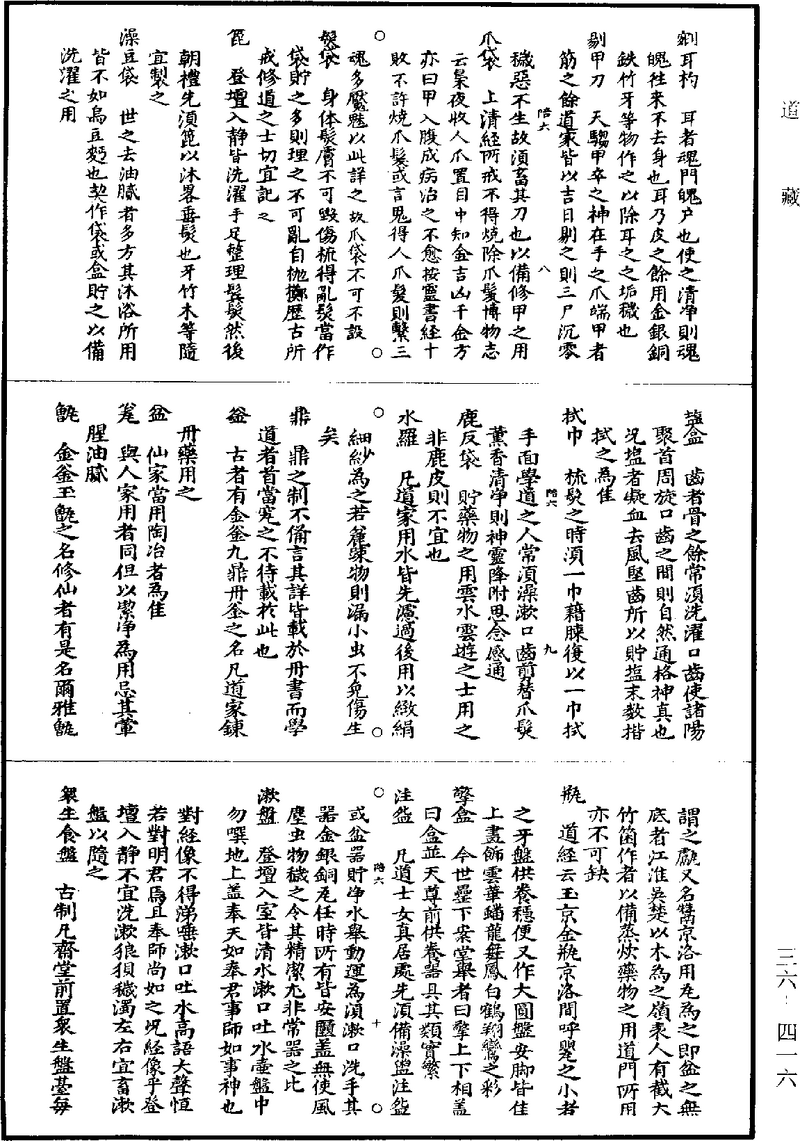 道藏
剜耳杓　耳者魂門魄户也使之清淨則魂
魄往來不去身也耳乃皮之餘用金銀銅
鉄竹牙等物作之以除耳之之垢穢也
剔甲刀　天騶甲卒之神在手之爪端甲者
筋之餘道家皆以吉日剔之則三尸沉零
陪六　八
穢惡不生故湏畜其刀也以備修甲之用
爪袋　上清經所戒不得燒除爪髮博物志
云梟夜收人爪置目中知金吉凶千金方
亦曰甲入腹成病治之不愈按靈書經十
敗不許燒爪鬢或言鬼得人爪髮則繫三
魂多魘魅以此詳之故爪袋不可不設
髮袋　身体髮膚不可毀傷梳得亂髮當作
袋貯之多則理之不可亂自抛擲歷古所
戒修道之士切宜記之
篦　登壇入静皆洗濯手足整理鬂髮然後
朝禮先湏篦以沐畧垂髮也牙竹木等隨
宜製之
澡豆袋　世之去油膩者多方其沐浴所用
皆不如烏豆麪也契作袋或盒貯之以備
洗濯之用
盐盒　齒者骨之餘常湏洗濯口齒使諸陽
聚首周旋口齒之間則自然通格神真也
况塩者凝血去風堅齒所以貯塩末数揩
拭之為佳
拭巾　梳髮之時湏一巾藉膝復以一巾拭
陪六　九
手面學道之人常湏澡漱口齒前替爪髮
薰香清淨則神靈降附思念感通
鹿反袋　貯藥物之用雲水雲遊之士用之
非鹿皮則不宜也
水羅　凡道家用水皆先濾過後用以緻絹
細紗為之若䔳竦物則漏小虫不免傷生
矣
鼎　鼎之制不備言其詳皆載於丹書而學
道者首當寃之不待載扵此也
釡　古者有金釡九鼎丹釡之名凡道家鍊
丹藥用之
盆　仙家當用陶冶者為佳
筅　與人家用者同但以潔淨為用忌其葷
腥油膩
甑　金釡玉甑之名修仙者有是名爾雅甑
謂之甗又名鬵京洛用瓦為之即盆之無
底者江淮吳楚以木為之嶺表人有截大
竹箇作者以備蒸炊藥物之用道門所用
亦不可缺
瓶　道經云玉京金瓶京洛間呼甖之小者
之牙盤供養穩便又作大圓盤安脚皆佳
上畫飾雲華蟠龍舞鳳白鶴翔鸞之彩
擎盒　今世壘下案堂舉者曰擎上下相盖
曰盒並天尊前供養噐具其類實繁
注盌　凡道士女真居處先湏備澡盥注盌
陪六　十
或盆器貯淨水舉動運為湏漱口洗手其
器金銀銅瓦任時所有皆安隱盖無使風
塵虫物穢之令其精潔尤非常器之比
漱盤　登壇入室皆清水漱口吐水壺盤中
勿噀地上盖奉天如奉君事師如事神也
對經像不得涕唾漱口吐水高語大聲恒
若對明君焉且奉師尚如之况經像乎登
壇入静不宜洗漱狼狽穢濁左右宜畜漱
盤以隨之
衆生食盤　古制凡齋堂前置衆生盤臺每
三六—四一六